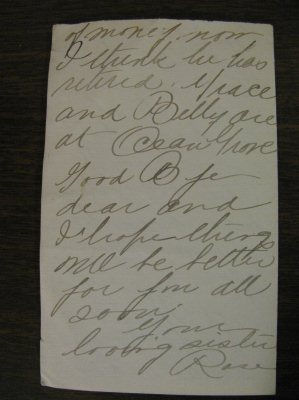 of money now
I think he has
retired. Grace
and Billy are
at Ocean Grove
Good Bye
dear and
I hope things
will be better
for you all
soon
Your
loving sister
Rose